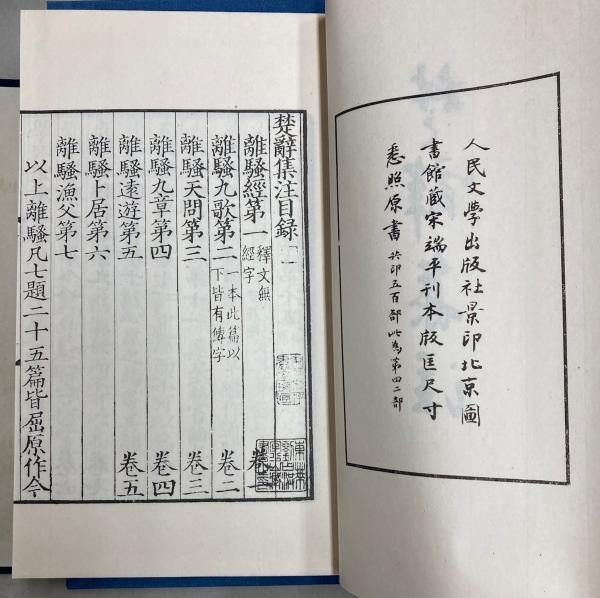 人民文學出版社景印北京圖
書館藏宋端平刊本版匡尺寸
悉照原書 共印五百部此為第四二部
楚辭集注目録
離騷經第一 釋文無 經字 卷一
離騷九歌第二 一本此篇以 下皆有傳字 卷二
離騷天問第三 卷三
離騷九章第四 卷四
離騷遠遊第五 卷五
離騷卜居第六
離騷漁父第七
以上離騷凡七題二十五篇皆屈原作今